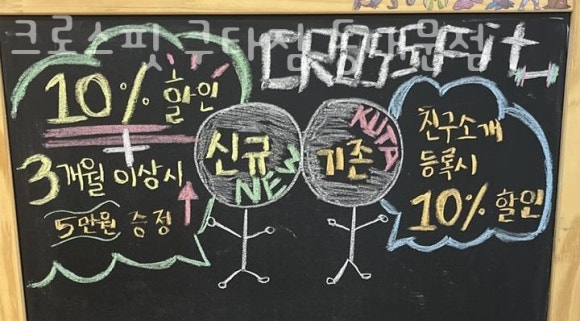 CROSSFit
10% 할인
+
3개월 이상시
5만원 증정
신규
NEW
기존
KUTA
친구소개
등록시
10% 할인